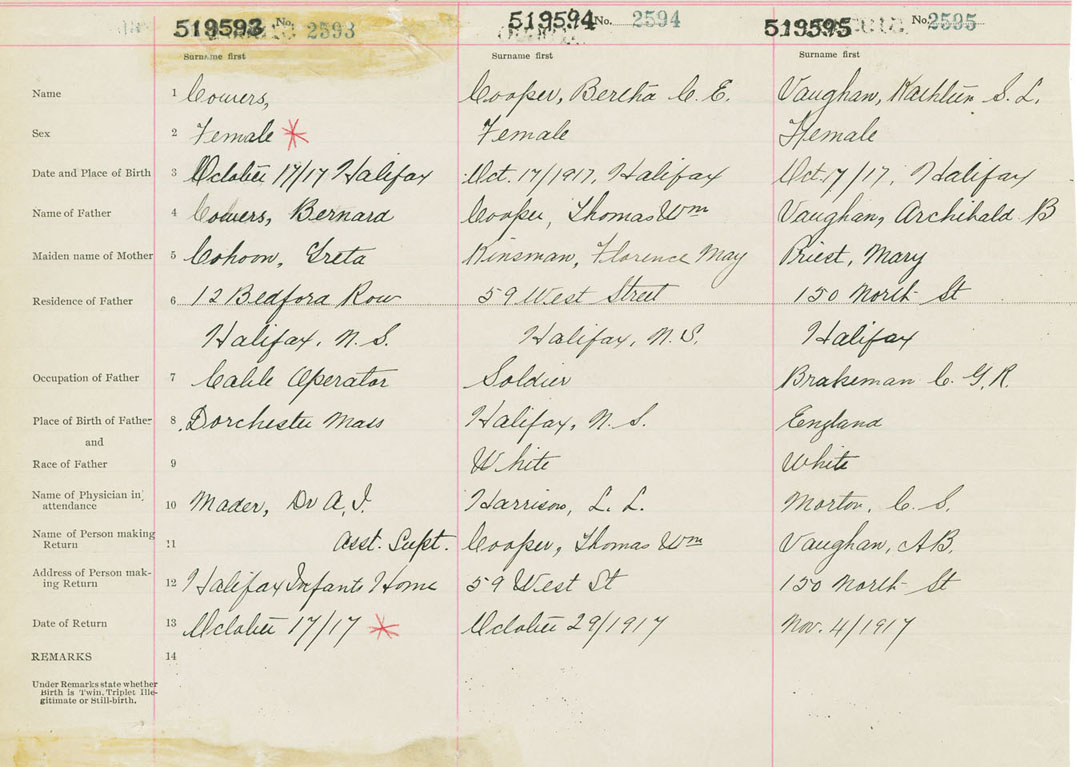 519593 No. 2593 519594 No. 2594 519595 No. 2595
Surname first Surname first Surname first
Name 1 Cowers, Cooper, Bertha C. E. Vaughan, Kathleen S. L.
Sex 2 Female * Female Female
Date and Place of Birth 3 October 17/17 Halifax Oct. 17/1917, Halifax Oct. 7/17, Halifax
Name of Father 4 Cowers, Bernard Cooper, Thomas Wm Vaughan, Archibald B
Maiden name of Mother 5 Cohoon, Greta Kinsman, Florence May Priest, Mary
Residence of Father 6 12 Bedford Row 59 West Street 150 North St
Halifax, N. S. Halifax, N. S. Halifax
Occupation of Father 7 Cable Operator Soldier Brakeman C. G. R.
Place of Birth of Father 8 Dorchester Mass Halifax, N. S. England
and
Race of Father 9 White White
Name of Physician in attendance 10 Mader, Dr A. I. Harrison, L. L. Morton, C. S.
Name of Person making Return 11 Asst. Supt. Cooper, Thomas Wm Vaughan, A.B.
Address of Person making Return 12 Halifax Infants Home 59 West St 150 North St
Date of Return 13 October 17/17 * October 29/1917 Nov. 4/1917
REMARKS 14
Under Remarks state whether
Birth is Twin, Triplet Ille-
gitimate or Still-birth.